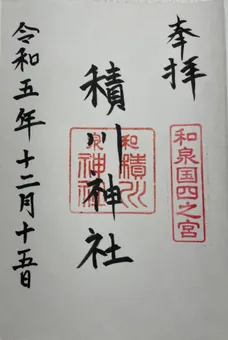 奉拝
和泉国四之宮
積川神社
和泉
積川
神社
令和五年十二月十五日